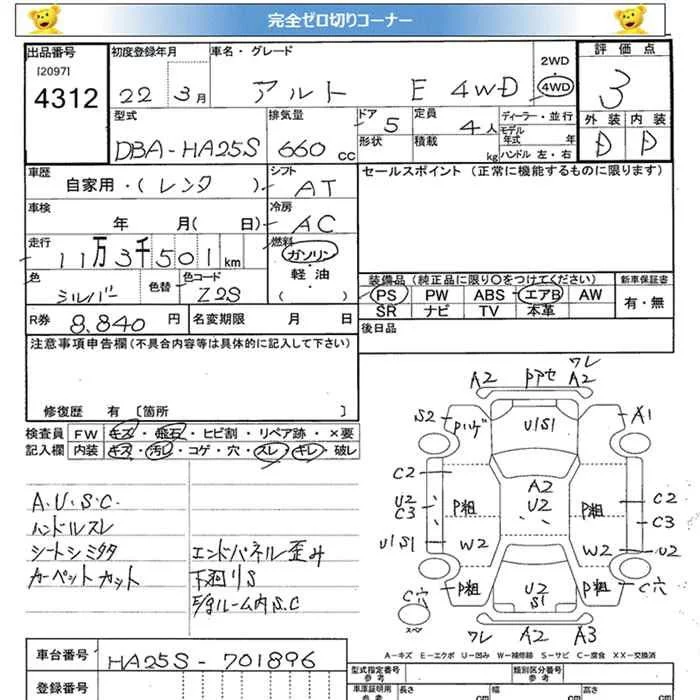 完全ゼロ切りコーナー
出品番号 初度登録年月 車名・グレード 2WD 評価点
[2097] 4312 22 3月 アルト E 4WD 4WD 3
型式 排気量 ドア 定員 ディーラー・並行 外装 内装
DBA-HA25S 660cc 5 4人 モデル年式 年 D D
形状 積載 kg ハンドル 左・右
車歴 シフト セールスポイント (正常に機能するものに限ります)
自家用・(レンタ) AT
車検 冷房
年 月( 日) AC
走行 燃料
11万3千501km ガソリン
色 色替 色コード 軽油
シルバー Z2S ( )
装備品 (純正品に限り〇をつけてください) 新車保証書
PS PW ABS エアB AW 有・無
SR ナビ TV 本革
R券 8,840円 名変期限 月 日 後日品
注意事項申告欄(不具合内容等は具体的に記入して下さい)
修復歴 有 [箇所 ]
検査員 FW キズ・飛石・ヒビ割・リペア跡・×要
記入欄 内装 キズ・汚レ・コゲ・穴・スレ・キレ・破レ
A.U.S.C.
ハンドルスレ
シートシミ
エンドパネル歪み
カーペットカット
下廻りS
ルーム内S.C
ワレ
A2 Pアセ A2
S2 Pハゲ U1S1 A1
C2 A2 C2
U2 C3 P粗 U2 P粗 C3
U1S1 W2 W2 U2
C穴 P粗 U2 S1 P粗 C穴
スペア
ワレ A2 A3
A-キズ E-エクボ U-凹み W-補修跡 S-サビ C-腐食 XX-交換済
車台番号 HA25S-701896
型式指定番号 参考 類別区分番号 参考
登録番号 車庫証明用 参考 長さ cm 幅 cm 高さ cm